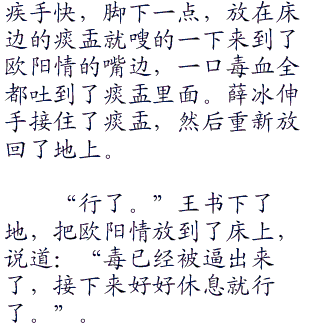 疾手快，脚下一点，放在床
边的痰盂就嗖的一下来到了
欧阳情的嘴边，一口毒血全
都吐到了痰盂里面。薛冰伸
手接住了痰盂，然后重新放
回了地上。
“行了。”王书下了
地，把欧阳情放到了床上，
说道：“毒已经被逼出来
了，接下来好好休息就行
了。”。